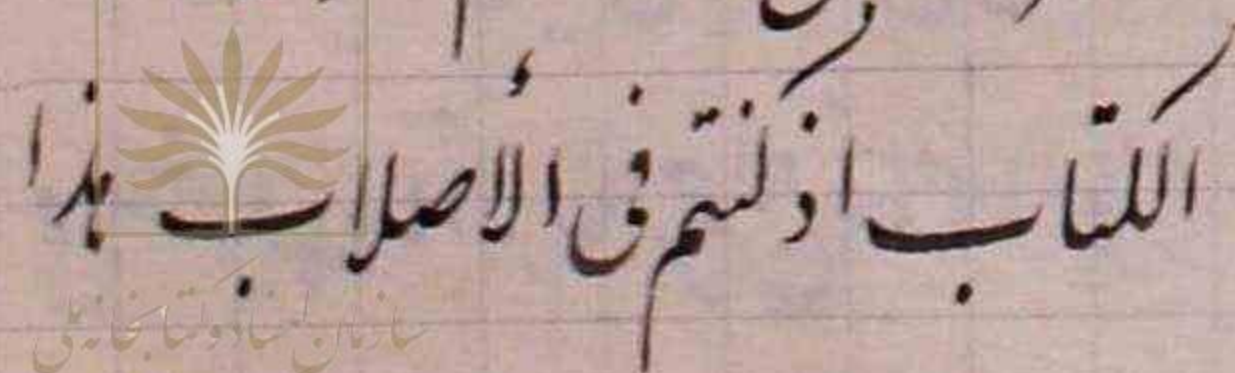 الکتاب اذ کنتم فی الأصلاب هذا
سازمان اسناد و کتابخانه ملی